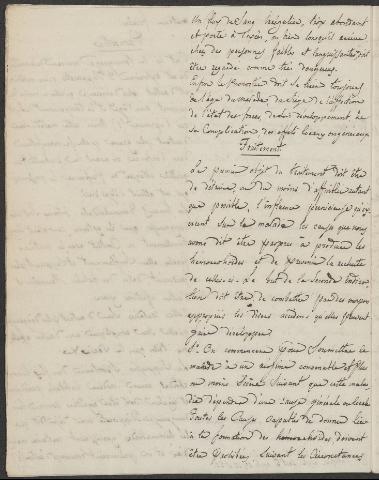 Un flux de sang hémorroïdal, trop abondant
et porté à l'excès, ou bien lorsqu'il arrive
chez des personnes faibles et languissantes doit
être regardé comme très dangereux.
Enfin le pronostic doit se tirer toujours
de l'age du malade du siège de l'affection
de l'état des forces, de son développement de
sa Complication des effets
Traitement.
Le premier objet du traitement doit être
de détruire, ou du moins d'affaiblir autant
que possible, l'influence pernicieuse
sur le malade les causes que nous
avons dit être propres à produire les
hémorrhoïdes et de prévenir la rechute
de celles-ci. Le but de la seconde
doit être de combattre par des moyens
appropriés les divers accidens qu'elles peuvent
développer.
1° On commencera pour soumettre le
malade à un régime convenable et plus
ou moins sévère suivant que cette mala-
die dépendra d'une cause générale ou locale
Toutes les Causes capables de donner lieu
à la formation des hémorrhoïdes doivent
être proscrites, suivant les Circonstances